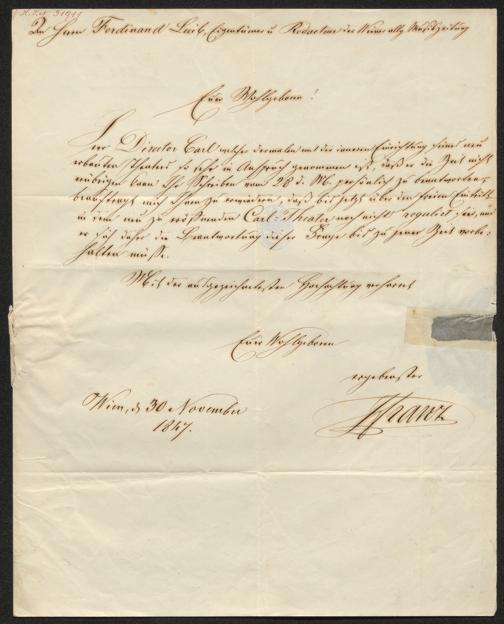 An Herrn Ferdinand Luib, Eigenthümer u Redacteur der Wiener allg Musikzeitung
Euer Wohlgeboren!
Herr Director Carl welcher dermalen mit der inneren Einrichtung seines neu
erbauten Theaters so sehr in Anspruch genommen ist, daß er die Zeit nicht
erübrigen kann Ihr Schreiben vom 28 d. M. persönlich zu beantworten,
beauftragt mich Ihnen zu erwiedern, daß bis jetzt über den freien Eintritt
in dem neu zu eröffnenden Carl-Theater noch nicht regulirt sei, und
er sich daher die Beantwortung dieser Frage bis zu jener Zeit vorbe-
halten müsse.
Mit der ausgezeichnetesten Hochachtung verharrt
Euer Wohlgeboren
ergebenster
Franz
Wien, d 30 November
1847.